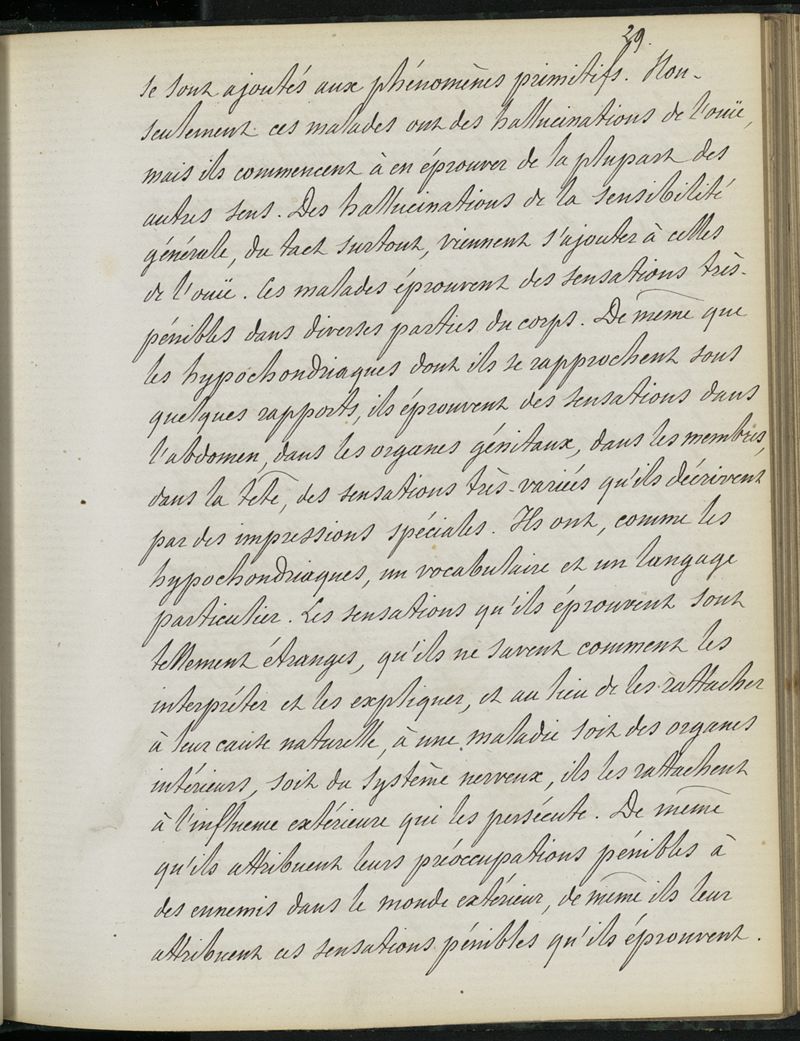 29.
se sont ajoutés aux phénomènes primitifs. Non-
seulement ces malades ont des hallucinations de l'ouïe,
mais ils commencent à en éprouver de la plupart des
autres sens. Des hallucinations de la sensibilité
générale, du tact surtout, viennent s'ajouter à celles
de l'ouïe. Ces malades éprouvent des sensations très-
pénibles dans diverses parties du corps. De même que
les hypochondriaques dont ils se rapprochent sous
quelques rapports, ils éprouvent des sensations dans
l'abdomen, dans les organes génitaux, dans les membres,
dans la tête, des sensations très-variées qu'ils décrivent
par des impressions spéciales. Ils ont, comme les
hypochondriaques, un vocabulaire et un langage
particulier. Les sensations qu'ils éprouvent sont
tellement étranges, qu'ils ne savent comment les
interpréter et les expliquer, et au lieu de les rattacher
à leur cause naturelle, à une maladie soit des organes
intérieurs, soit du système nerveux, ils les rattachent
à l'influence extérieure qui les persécute. De même
qu'ils attribuent leurs préoccupations pénibles à
des ennemis dans le monde extérieur, de même ils leur
attribuent ces sensations pénibles qu'ils éprouvent.